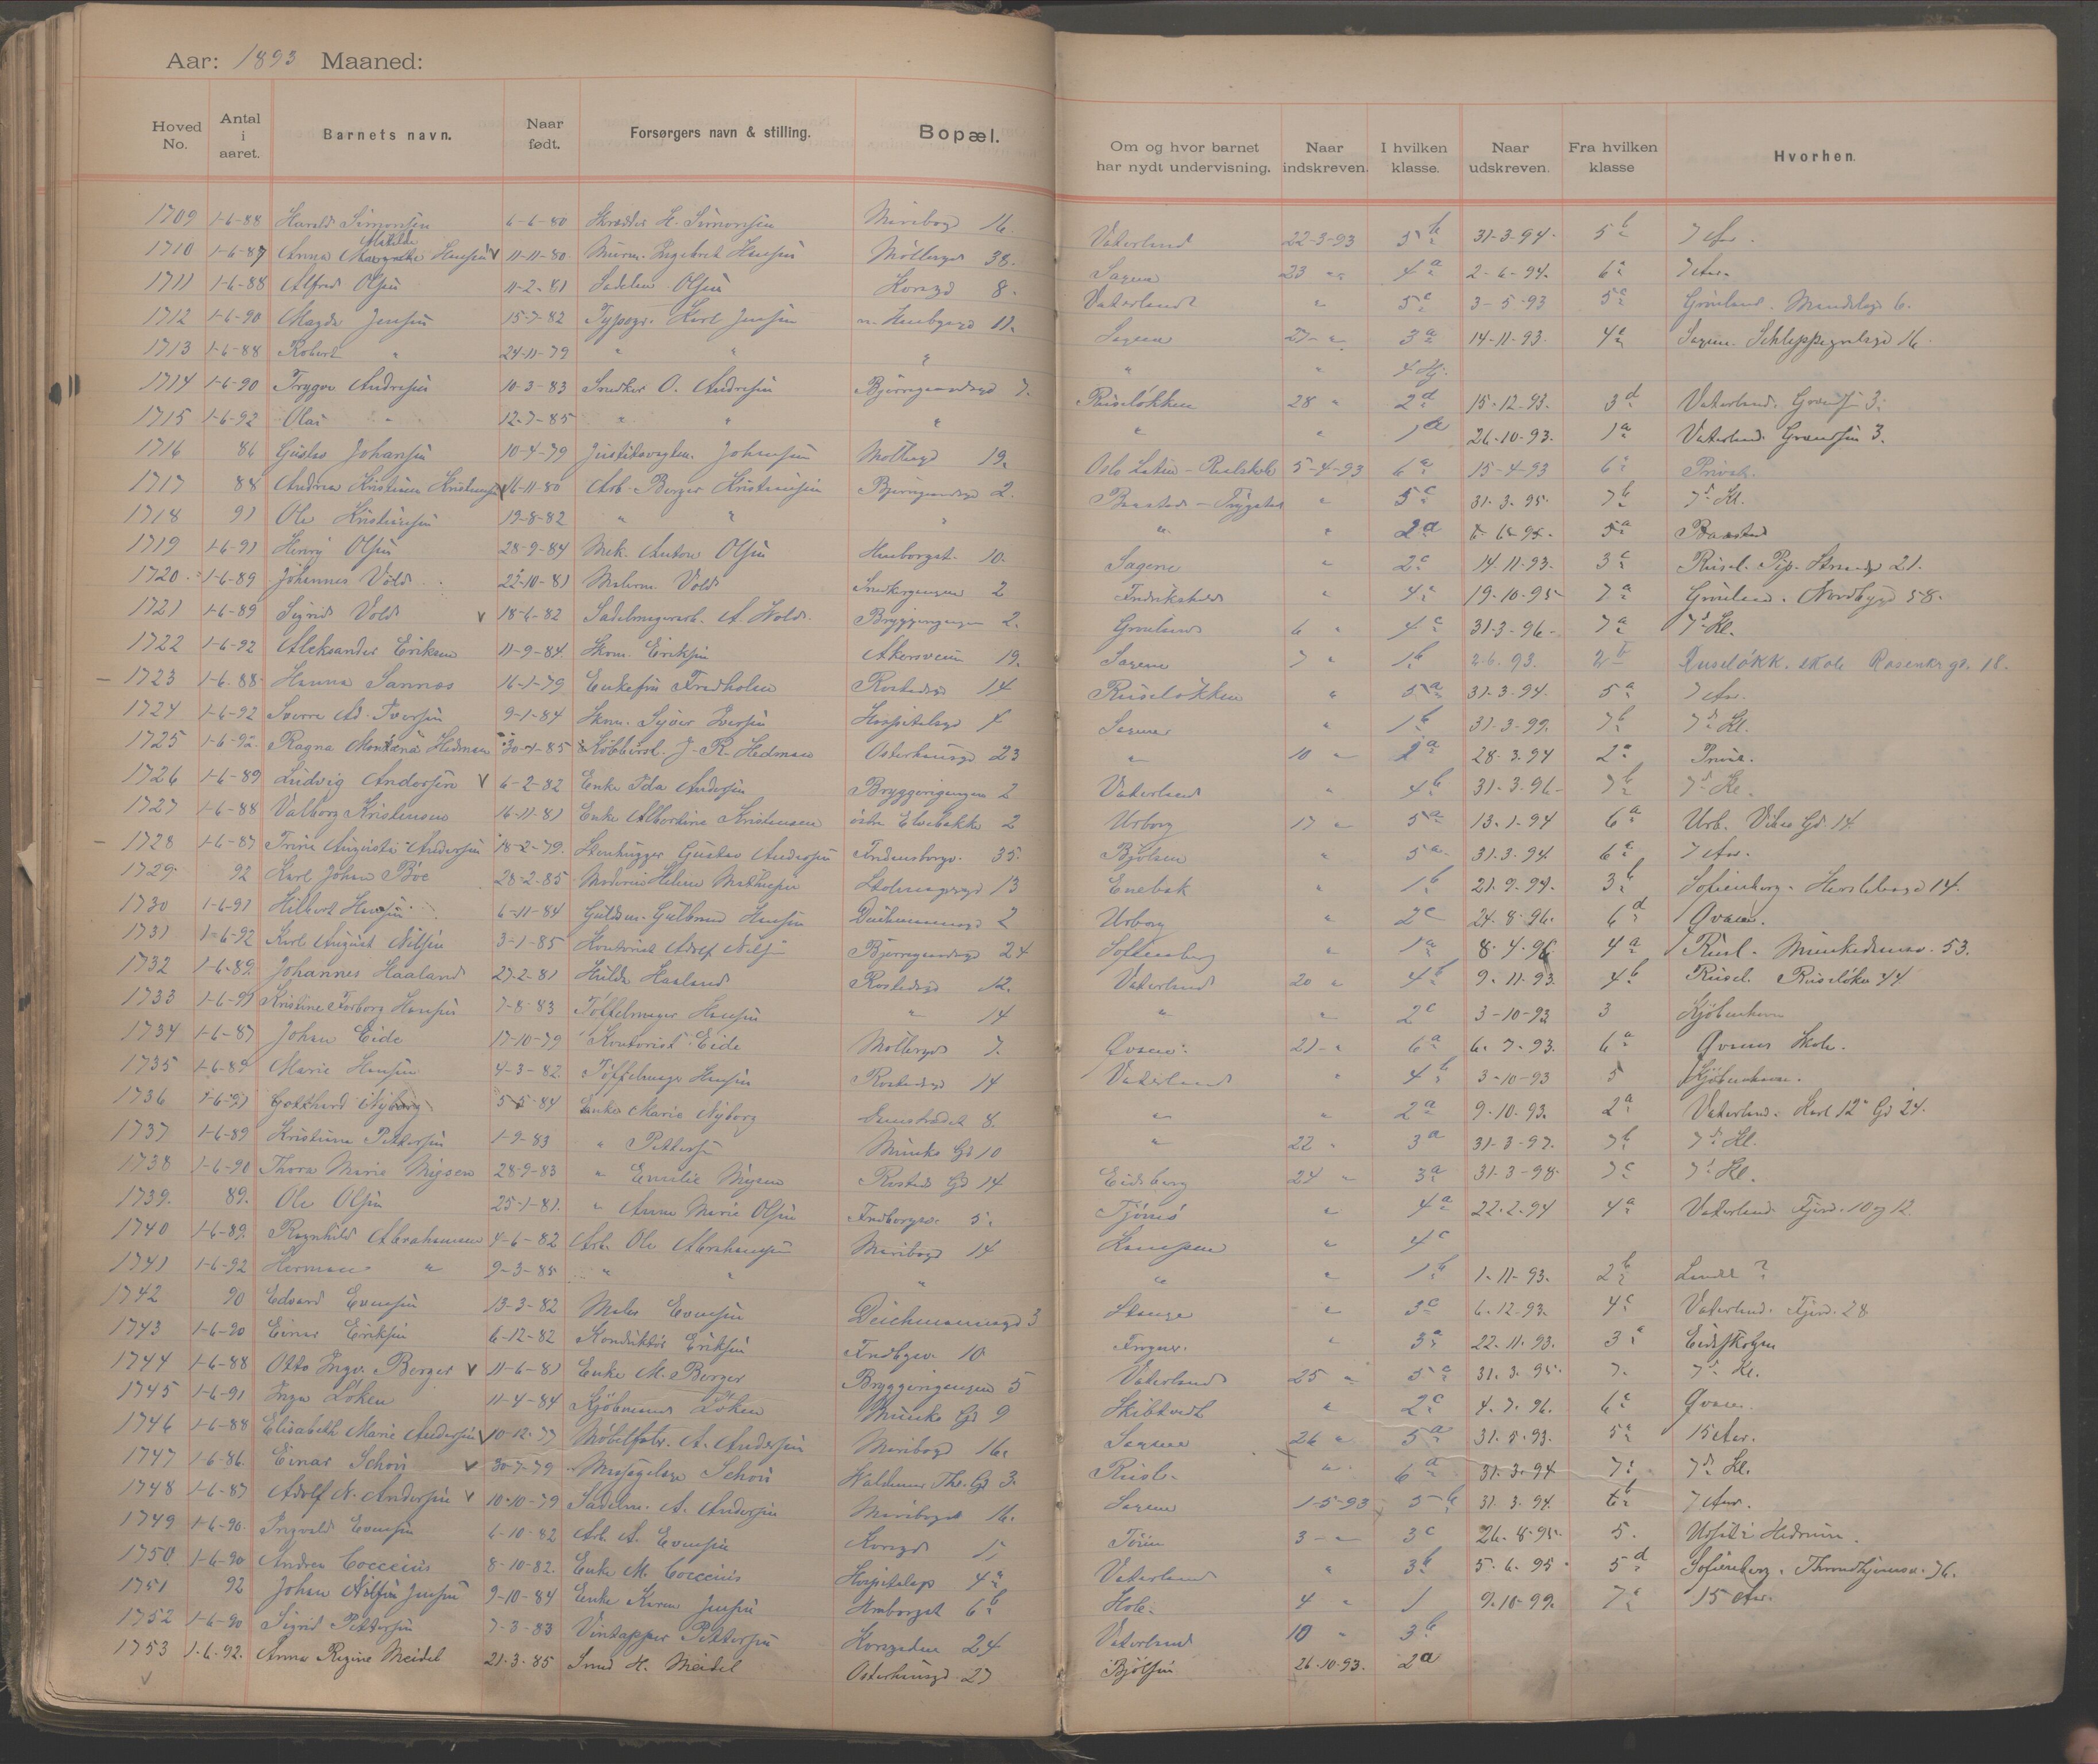 Aar: 1893 Maaned:
Hoved No. Antal i aaret. Barnets navn. Naar født. Forsørgers navn & stilling. Bopæl. Om og hvor barnet har nydt undervisning. Naar indskreven. I hvilken klasse. Naar udskreven. Fra hvilken klasse Hvorhen.
1709 1-6-88 Harald Simonsen 6-6-80 Skrædder H. Simonsen Maribogd 16. Vaterland 22-3-93 5 b 31-3-94 5 b 7 Aar.
1710 1-6-87 Anna Matilde Hansen v 11-11-80 Murm. Ingebret Hansen Møllergd 38. Sagene 23 " 4 a 2-6-94. 6 a 7 Aar.
1711 1-6-88 Alfred Olsen 11-2-81 Sadelm. Olsen Korsgd 8. Vaterland " 5 c 3-5-93 5 c Grønland. 6.
1712 1-6-90 Magda Jensen 15-7-82 Typogr. Karl Jensen 11. Sagene 27 " 3 a 14-11-93. 4 a Sagene. Schleppegrelsgd 16.
1713 1-6-88 Robert " 24-11-79 " " " " " 4
1714 1-6-90 Trygve Andresen 10-3-83 Snedker O. Andresen Bjerregaardsgd 7. Ruseløkken 28 " 2 d 15-12-93. 3 d Vaterland. 3.
1715 1-6-92 Olai " 12-7-85 " " " " " 1 a 26-10-93. 1 a Vaterland. 3.
1716 86 Gustav Johansen 10-4-79 Johansen Møllergd 19. Oslo Latin - Realskole 5-4-93 6 a 15-4-93 6 a Privat.
1717 88 Andrea Kristiane Kristiansen v 16-11-80 Arb. Berger Kristiansen Bjerregaardsgd 2. Baastad - Trygstad " 5 c 31-3-95. 7 b 7de Kl.
1718 91 Ole Kristiansen 19-8-82 " " " " " 2 a 6-95. 5 a Baastad
1719 1-6-91 Henry Olsen 28-9-84 Mek. Anton Olsen 10. Sagene " 2 c 14-11-93. 3 c Rusel. Pip. 21.
1720 1-6-89 Johannes Vold 22-10-81 Malerm. Vold Snedkergangen 2 Fredrikshald " 4 a 19-10-95 7 a Grønland. Nordbygd 58.
1721 1-6-89 Sigrid Vold v 18-6-82 Sadelmagerarb. A. Wold. Bryggerigangen 2. Grønland 6 " 4 c 31-3-96- 7 a 7de Kl.
1722 1-6-92 Aleksander Eriksen 11-9-84. Skom. Eriksen Akersveien 19. Sagene 7 " 1 b 2-6-93. 2 b Ruseløkk. skole Rosenkr. gd. 18.
1723 1-6-88 Hanna Sannæs 16-1-79 Enkefru Fredholm Rostedsgd 14 Ruseløkken " 5 a 31-3-94. 5 a 7 Aar.
1724 1-6-92 Sverre Ad. Iversen 9-1-84 Skom. Syver Iversen Hospitalsgd Sagene " 1 b 31-3-99. 7 b 7de Kl.
1725 1-6-92. Ragna Hedman 30-4-85 Kobbersl. J. R. Hedman Osterhausgd 23 " 10 " 2 a 28-3-94 2 a Privat.
1726 1-6-89 Ludvig Andersen v 6-2-82 Enke Ida Andersen Bryggerigangen 2 Vaterland " 4 b 31-3-96- 7 b 7de Kl.
1727 1-6-88 Valborg Kristensen 16-11-81 Enke Albertine Kristensen østre Elvebakke 2 Urborg 17 " 5 a 13-1-94 6 a Urb. Vibes Gd 14.
1728 1-6-87 Trine Augusta Andersen 18-2-79. Stenhugger Gustav Andersen Fredensborgv. 35. Bjølsen " 5 a 31-3-94. 6 a 7 Aar.
1729 92 Karl Johan Boe 28-2-85 Helene Mathisen 13 Enebak " 1 b 21-9-94. 3 b Sofienberg. Herslebsgd 14.
1730 1-6-91 Hilbert Hansen 6-11-84 Guldsm. Gulbrand Hansen Deichmannsgd 2 Urborg " 2 c 24-8-96. 6 d Qvæn.
1731 1-6-92 Karl August Nilsen 3-1-85 Kontorist Adolf Nilsen Bjerregaardsgd 24 Sofienberg " 1 a 8-4-96 4 a Rusel. Munkedamsv. 53.
1732 1-6-89. Johannes Haaland 27-2-81 Hulda Haaland Rostedsgd 12. Vaterland 20 " 4 b 9-11-93. 4 b Rusel. Ruseløkv 44.
1733 1-6-91 Kristine Torborg Hansen 7-8-83 Tøffelmager Hansen " 14 " " 2 c 3-10-93 3 Kjøbenhavn
1734 1-6-87 Johan Eide 17-10-79 Kontorist Eide Møllergd 7. Qvæn. 21 " 6 a 6-7-93. 6 a Qvæns Skole.
1735 1-6-89 Marie Hansen 4-3-82. Tøffelmager Hansen Rostedsgd 14 Vaterland " 4 b 3-10-93 5 Kjøbenhavn.
1736 1-6-91 Gotthard Nyborg 5-5-84 Enke Marie Nyborg 8. " " 2 a 9-10-93. 2 a Vaterland. Karl 12' Gd 24.
1737 1-6-89 Kristiane Pettersen 1-9-83 " Pettersen Munks Gd 10 " 22 " 3 a 31-3-97. 7 b 7de Kl.
1738 1-6-90 Thora Marie Mysen 28-9-83 " Emilie Mysen Rosteds Gd 14 Eidsberg 24 " 3 a 31-3-98. 7 c 7de Kl.
1739. 89. Ole Olsen 25-1-81. " Anna Marie Olsen Fredborgv. 5. Tjømø " 4 a 22-2-94 4 a Vaterland Fjerd. 10 og 12.
1740 1-6-89. Ragnhild Abrahamsen 4-6-82 Arb. Ole Abrahamsen Maribogd 14 Kampen " 4 c
1741 1-6-92 Herman " 9-3-85 " " " " " 1 b 1-11-93. 2 b Landet ?
1742 90 Edvard Evensen 13-3-82 Maler Evensen Deichmannsgd 3 Stange " 3 c 6-12-93. 4 c Vaterland. Fjerd. 28
1743 1-6-90 Einar Eriksen 6-12-82 Konduktør Eriksen 10. Frogner. " 3 a 22-11-93. 3 a Eidskogen
1744 1-6-88 Otto Ingv. Berger v 11-6-81 Enke M. Berger Bryggerigangen 5 Vaterland 25 " 5 a 31-3-95. 7. 7de Kl.
1745 1-6-91 Inga Løken 11-4-84 Kjøbmand Løken Munks Gd 9 Skibtvedt " 2 c 4-7-96. 6 c Qvæn.
1746 1-6-88 Elisabeth Marie Andersen v 10-12-77 Møbelfabr. A. Andersen Maribogd 16. Sagene 26 " 5 a 31-5-93. 5 a 15 Aar.
1747 1-6-86. Einar Schou v 30-7-79 Schou Waldemar Thr. Gd 3. Rusel. " 6 a 31-3-94 7 a 7de Kl.
1748 1-6-87 Adolf N. Andersen v 10-10-79 Sadelm. A. Andersen Maribogd 16. Sagene 1-5-93 5 b 31-3-94. 6 b 7 Aar.
1749 1-6-90. Ingvald Evensen 6-10-82 Arb. A. Evensen Korsgd 3 " 3 c 26-8-95. 5. Hedrum.
1750 1-6-90 Andrea Coccenius 8-10-82. Enke M. Coccenius Hospitalsgd 4 a Vaterland " 3 b 5-6-95 5 d Sofienberg. Throndhjemsv. 76.
1751 92 Johan Jensen 9-10-84 Enke Karen Jensen 6 b Hole. 4 " 1 9-10-99. 7 a 15 Aar.
1752 1-6-90 Sigrid Pettersen 7-3-83 Vintapper Pettersen Korsgaden 24 Vaterland 10 " 3 b
1753 1-6-92. Anna Regine Meidel 21-3-85 Sned H. Meidel Osterhausgd 27 Bjølsen 26-10-93. 2 a